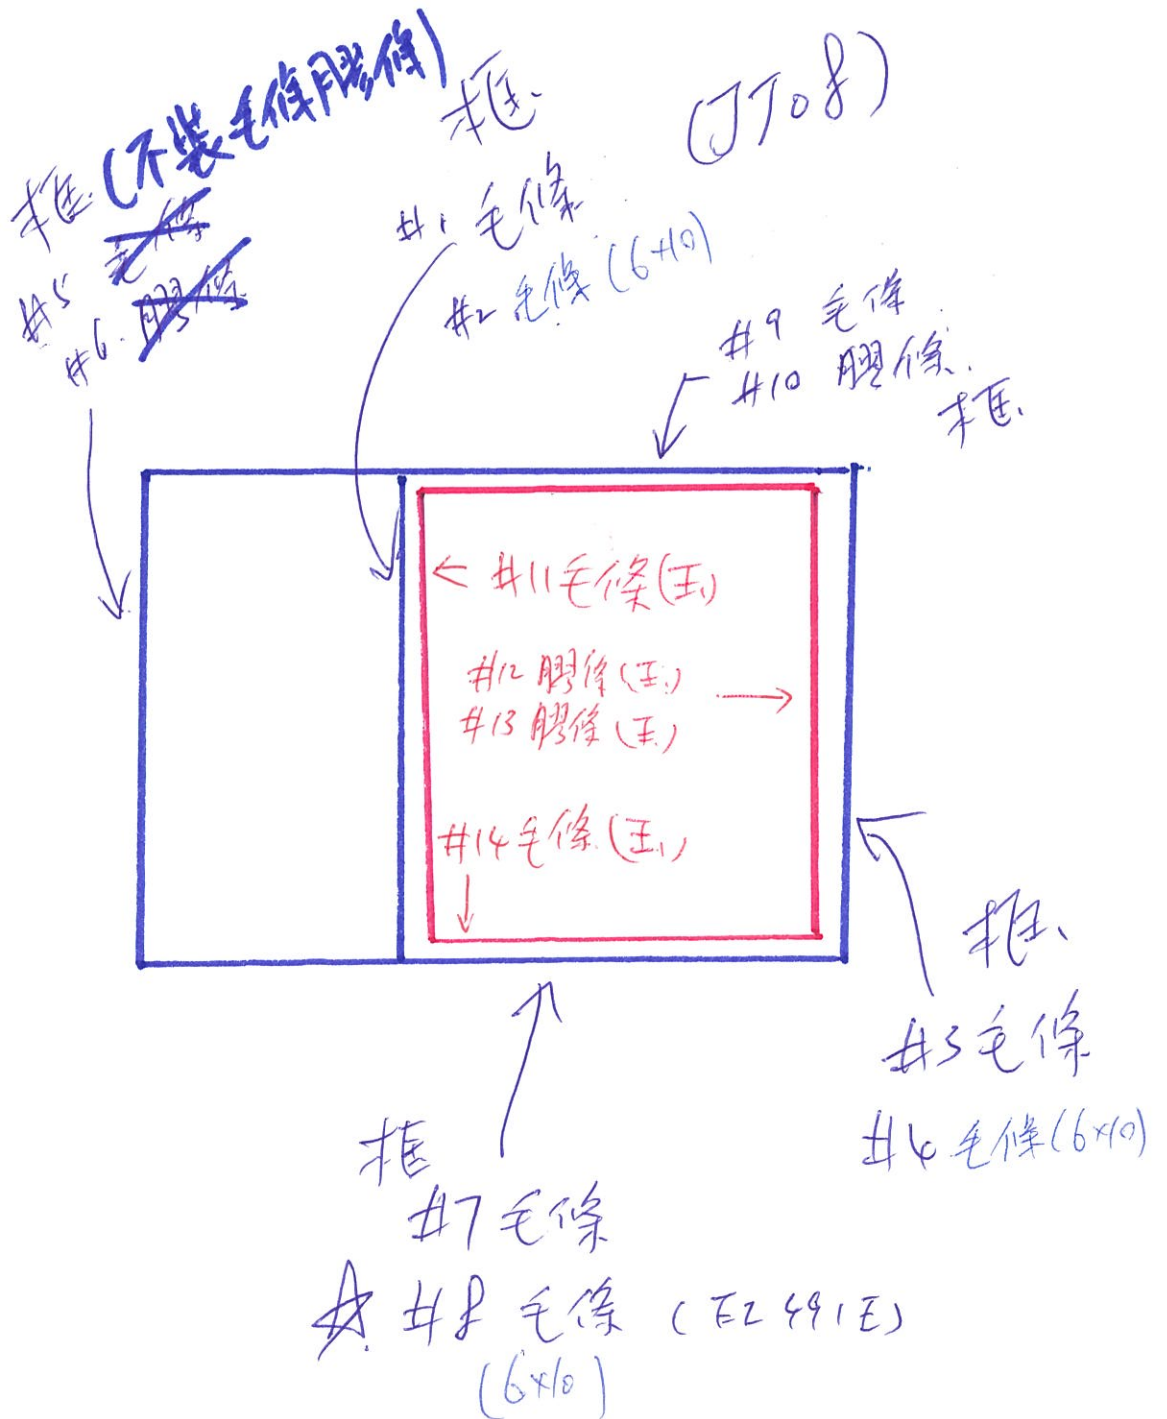 框 (不裝毛條膠條)
#5 毛條
#6. 膠條
框
(JT08)
#1 毛條
#2 毛條 (6×10)
#9 毛條
#10 膠條
框
← #11 毛條(玉)
#12 膠條(玉)
#13 膠條(玉)
#14 毛條(玉)
框
#3 毛條
#4 毛條(6×10)
框
#7 毛條
☆ #8 毛條 (EZ491E)
(6×10)